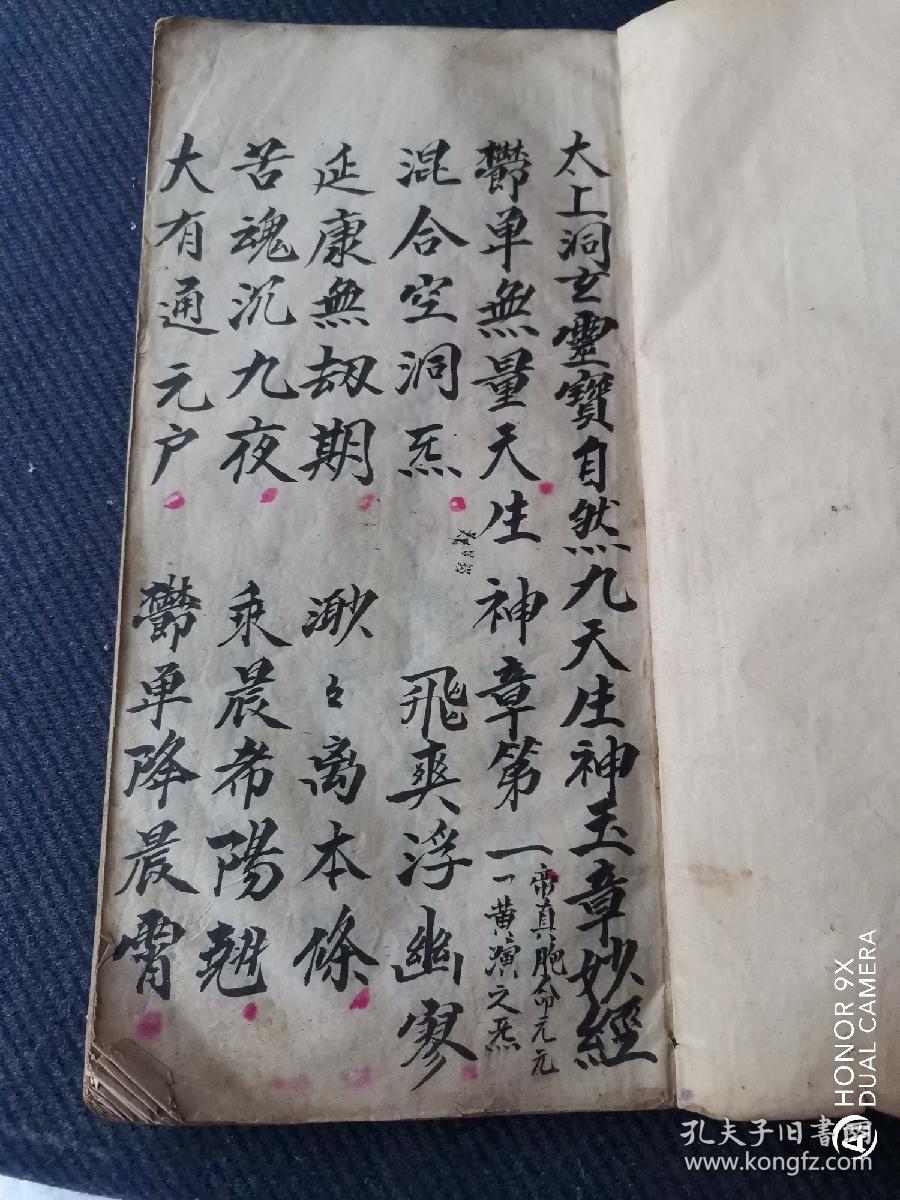 太上洞玄靈寶自然九天生神玉章妙經
鬱單無量天生神章第一
帝真胞命元元
一黄演之炁
混合空洞炁 飛爽浮幽寥
延康無劫期 渺々离本條
苦魂沉九夜 乘晨希陽翹
大有通元户 鬱单降晨霄
HONOR 9X
DUAL CAMERA
AI
孔夫子旧書网
www.kongfz.com